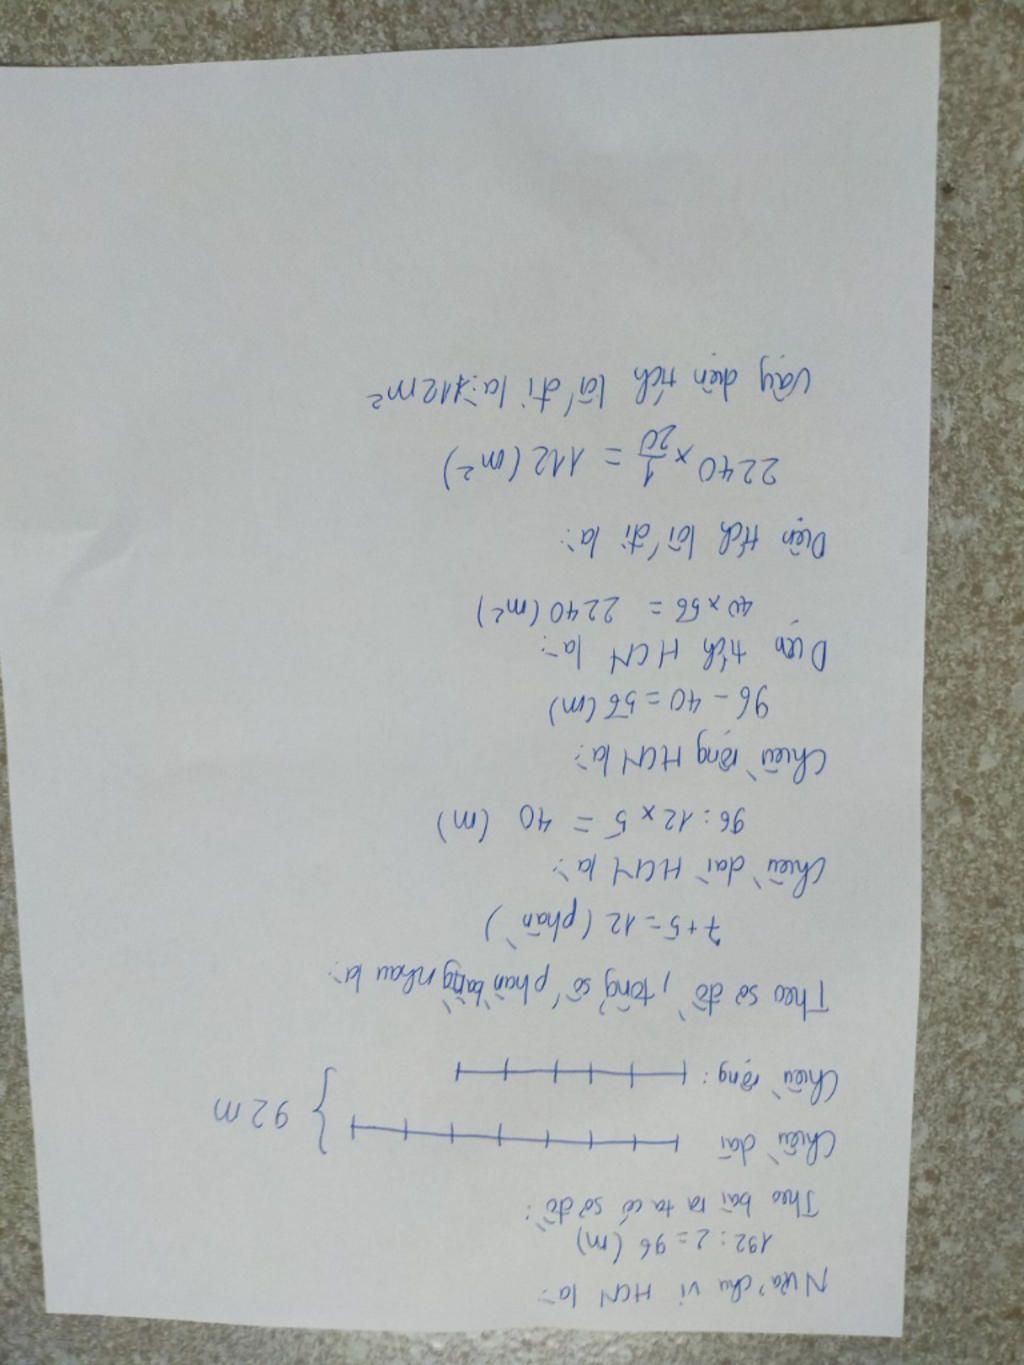 Nửa chu vi HCN là:
192 : 2 = 96 (m)
Theo bài ra ta có sơ đồ:
Chiều dài
Chiều rộng:
92m
Theo sơ đồ, tổng số phần bằng nhau là:
7+5=12 (phần)
Chiều dài HCN là:
96:12 x 5 = 40 (m)
Chiều rộng HCN là:
96 - 40 = 56 (m)
Diện tích HCN là:
40 x 56 = 2240 (m²)
Diện tích lối đi là:
2240 x 1/20 = 112 (m²)
Vậy diện tích lối đi là: 112m²